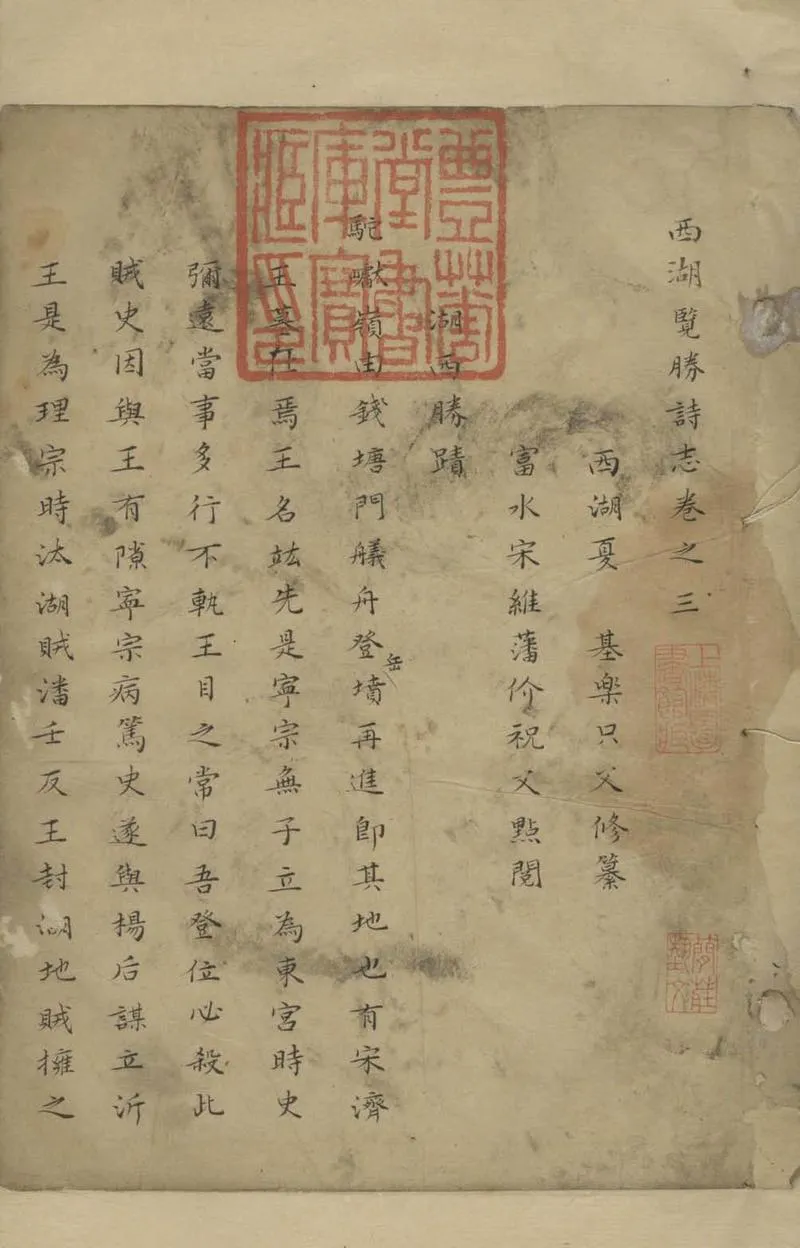 西湖覽勝詩志卷之三
西湖夏 基樂只父修纂
富水宋維藩价祝父點閱
湖西勝蹟
駝巘嶺由錢塘門艤舟登岳墳再進即其地也有宋濟
王墓在焉王名竑先是寧宗無子立為東宮時史
彌遠當事多行不軌王目之常曰吾登位必殺此
賊史因與王有隙寧宗病篤史遂與楊后謀立沂
王是為理宗時汰湖賊潘壬反王封湖地賊擁之